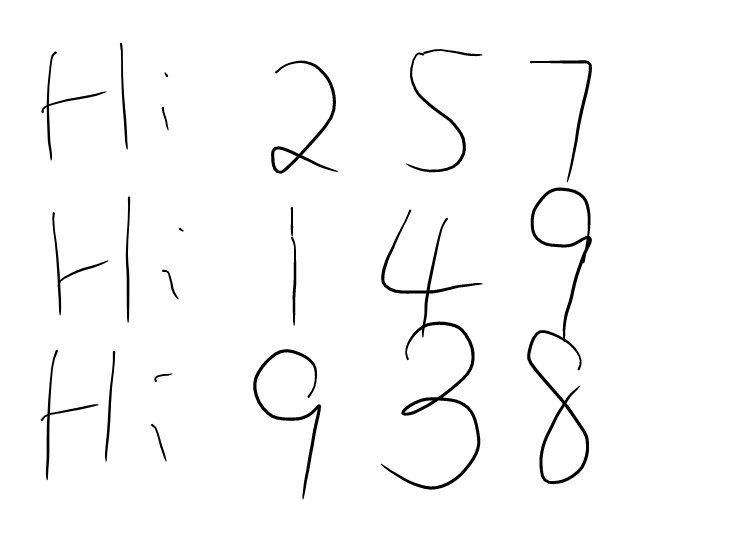 Hi 2 5 7
Hi 1 4 9
Hi 9 3 8